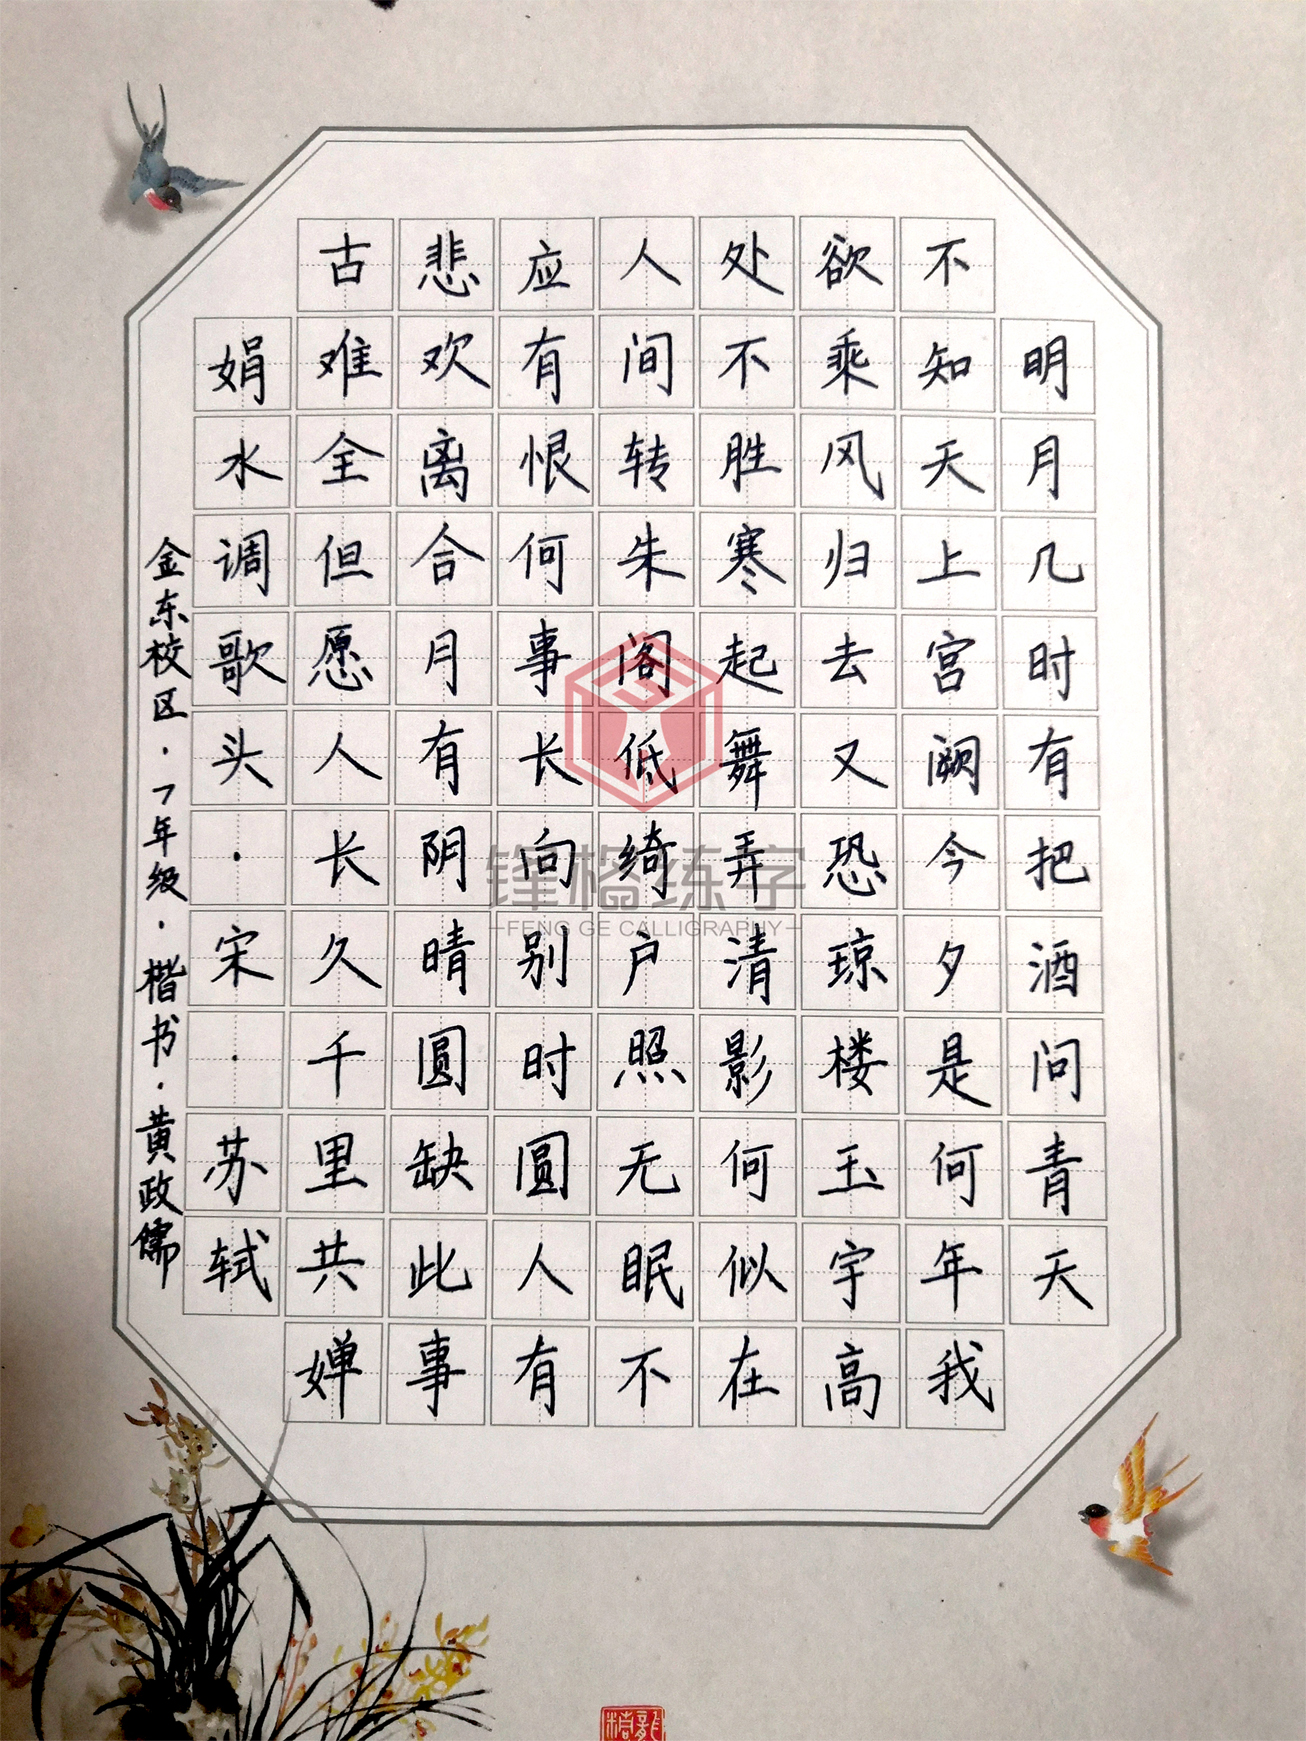 明月几时有把酒问青天
不知天上宫阙今夕是何年我
欲乘风归去又恐琼楼玉宇高
处不胜寒起舞弄清影何似在
人间转朱阁低绮户照无眠不
应有恨何事长向别时圆人有
悲欢离合月有阴晴圆缺此事
古难全但愿人长久千里共婵
娟水调歌头·宋·苏轼
金东校区·7年级·楷书·黄政儒
锋格练字
FENG GE CALLIGRAPHY